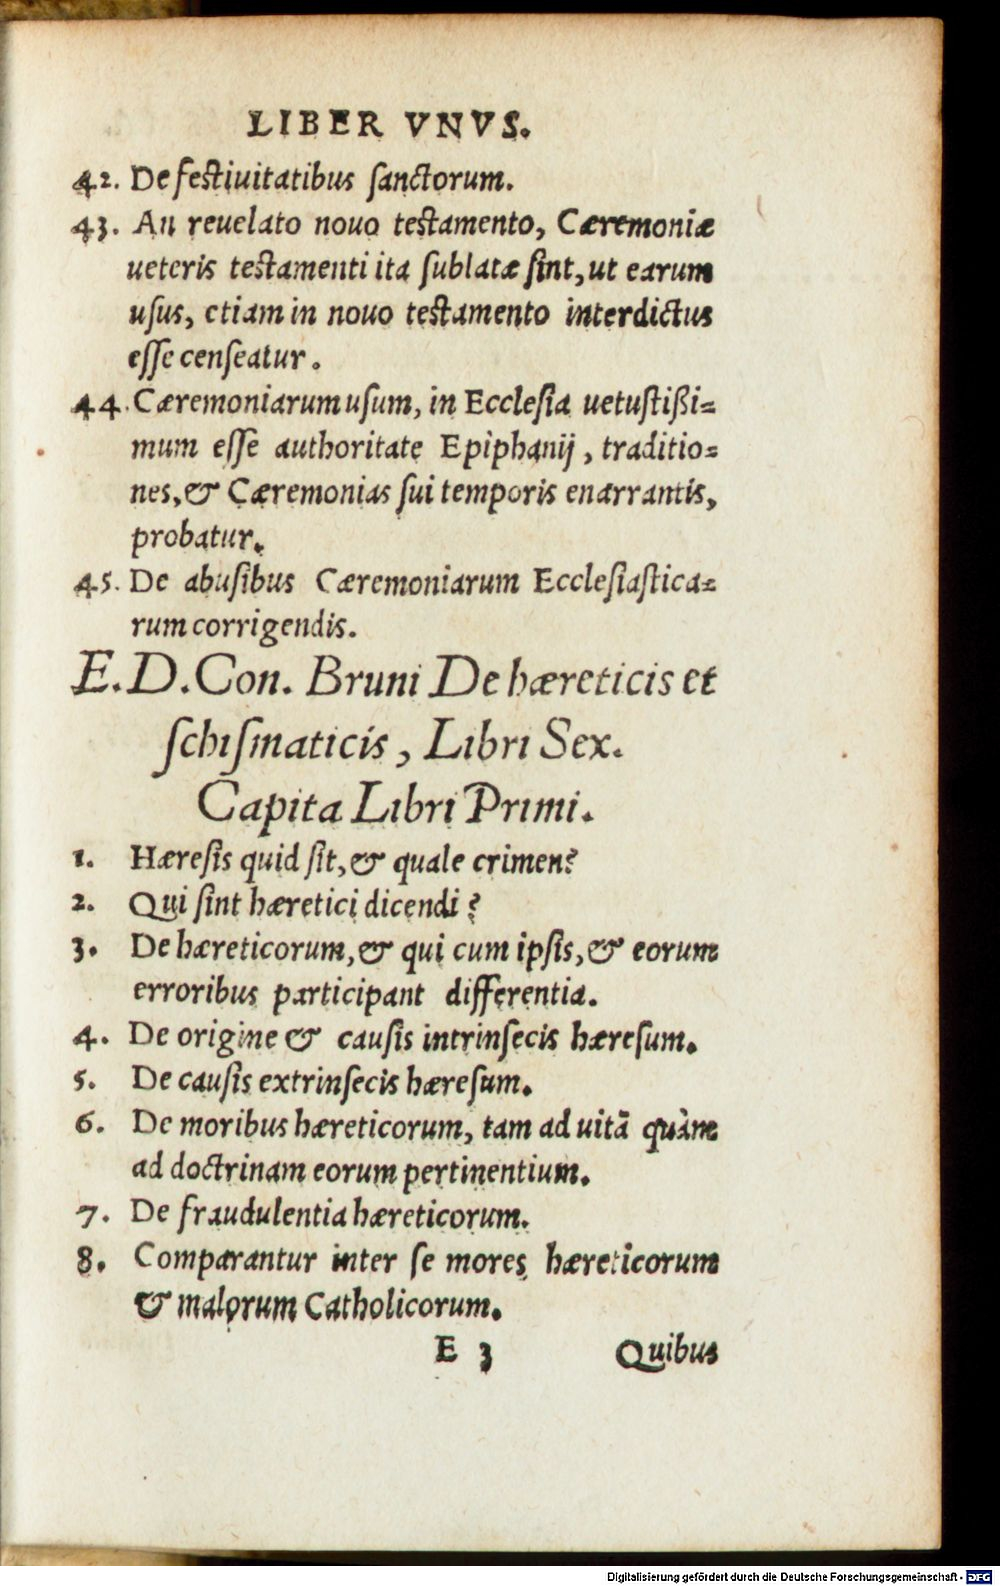 LIBER VNVS.
42. De festiuitatibus ſanctorum.
43. An reuelato nouo testamento, Cæremoniæ
ueteris testamenti ita ſublatæ ſint, ut earum
uſus, etiam in nouo testamento interdictus
eſſe cenſeatur.
44. Cæremoniarum uſum, in Eccleſia uetuſtißi=
mum eſſe authoritate Epiphanij, traditio=
nes, & Cæremonias ſui temporis enarrantis,
probatur.
45. De abuſibus Cæremoniarum Eccleſiaſtica=
rum corrigendis.
E.D.Con. Bruni De hæreticis et
ſchiſmaticis, Libri Sex.
Capita Libri Primi.
1. Hæreſis quid ſit, & quale crimen?
2. Qui ſint hæretici dicendi?
3. De hæreticorum, & qui cum ipſis, & eorum
erroribus participant differentia.
4. De origine & cauſis intrinſecis hæreſum.
5. De cauſis extrinſecis hæreſum.
6. De moribus hæreticorum, tam ad uitã quàm
ad doctrinam eorum pertinentium.
7. De fraudulentia hæreticorum.
8. Comparantur inter ſe mores hæreticorum
& malorum Catholicorum.
E 3 Quibus
Digitalisierung gefördert durch die Deutsche Forschungsgemeinschaft - DFG